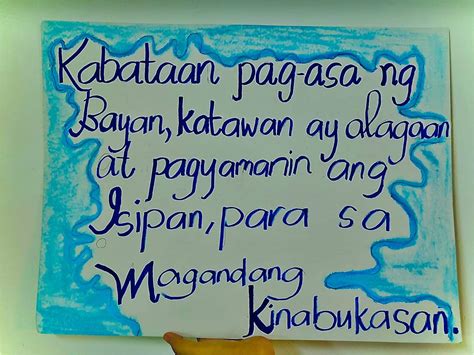 Kabataan pag-asa ng
Bayan, katawan ay alagaan
at pagyamanin ang
Isipan, para sa
Magandang
Kinabukasan.